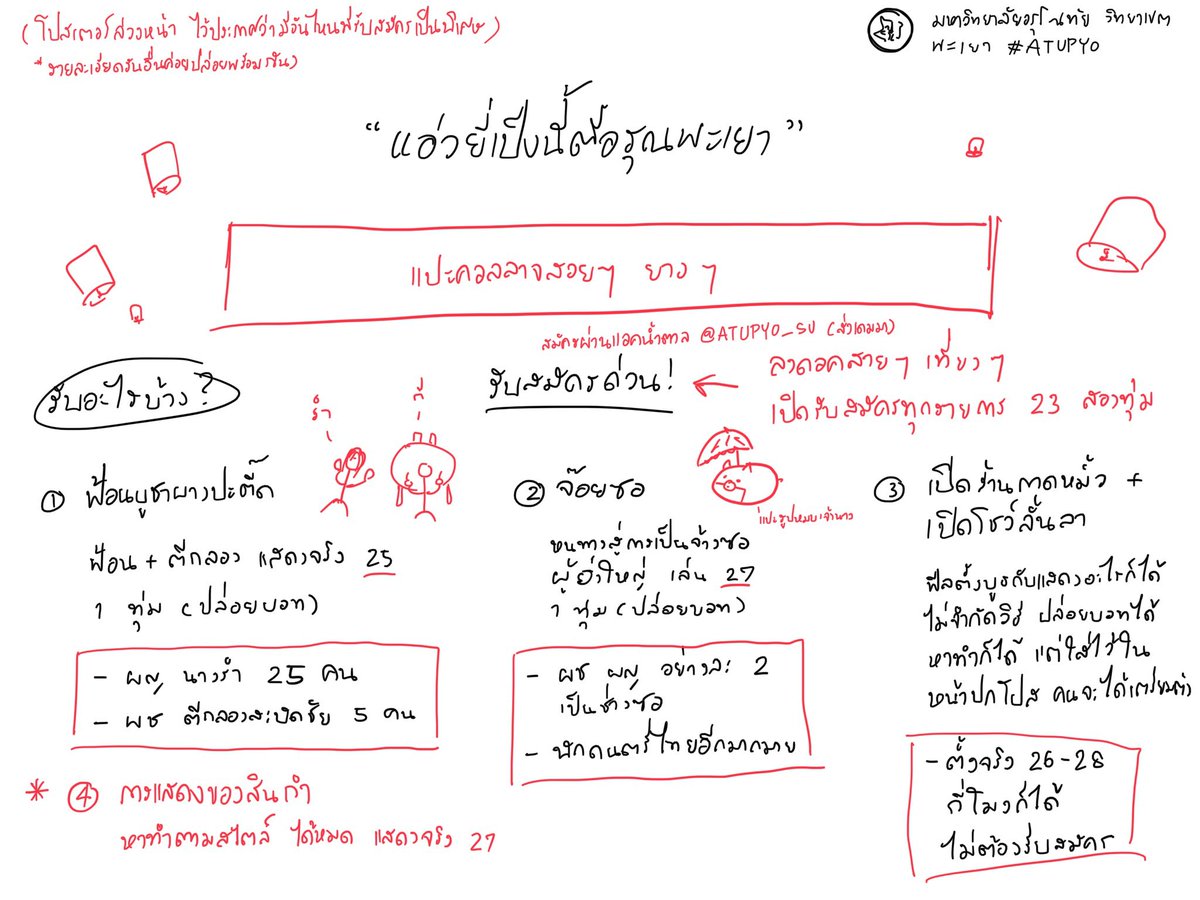 (โปสเตอร์ล่วงหน้า ไว้ประกาศว่ามีวันไหนที่รับสมัครเป็นพิเศษ)
*รายละเอียดวันอื่นค่อยปล่อยพร้อมกัน)
มหาวิทยาลัยอรุโณทัย วิทยาเขต
พะเยา #ATUPYO
"แอ่วยี่เป็งนี้ต๊ออรุณพะเยา"
แปะควอลลาจสวยๆ ยาวๆ
สมัครผ่านแอคน้ำตาล @ATUPYO_SU (ส่งเดมมา)
รับอะไรบ้าง?
รับสมัครด่วน!
ลาดอคสายๆ เที่ยงๆ
เปิดรับสมัครทุกรายการ 23 สองทุ่ม
รำ
ตี
① ฟ้อนบูชาผางประตี๊ด
ฟ้อน + ตีกลอง แสดงจริง 25
1 ทุ่ม (ปล่อยบอท)
- ผญ นางรำ 25 คน
- ผช ตีกลองสะบัดชัย 5 คน
② จ๊อยซอ
แปะรูปหมูเจ้านาง
หนทางสู่การเป็นจ้างซอ
ผู้ยิ่งใหญ่ เล่น 27
1 ทุ่ม (ปล่อยบอท)
- ผช ผญ อย่างละ 2
เป็นช่างซอ
- นักดนตรีไทยอีกมากมาย
③ เปิดร้านกาดหมั้ว +
เปิดโชว์ลั้นลา
ฟีลตั้งบูธกับแสดงอะไรก็ได้
ไม่จำกัดวิธี ปล่อยบอทได้
หาทำก็ได้ แต่ใส่ไว้ใน
หน้าปกโปส คนจะได้เตรียมตัว
- ตั้งจริง 26-28
กี่โมงก็ได้
ไม่ต้องรับสมัคร
* ④ การแสดงของสินกำ
หาทำตามสไตล์ ได้หมด แสดงจริง 27